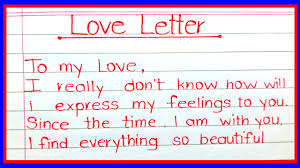 Love Letter
To my Love,
I really don't know how will
i express my feelings to you.
Since the time I am with you,
I find everything so beautiful